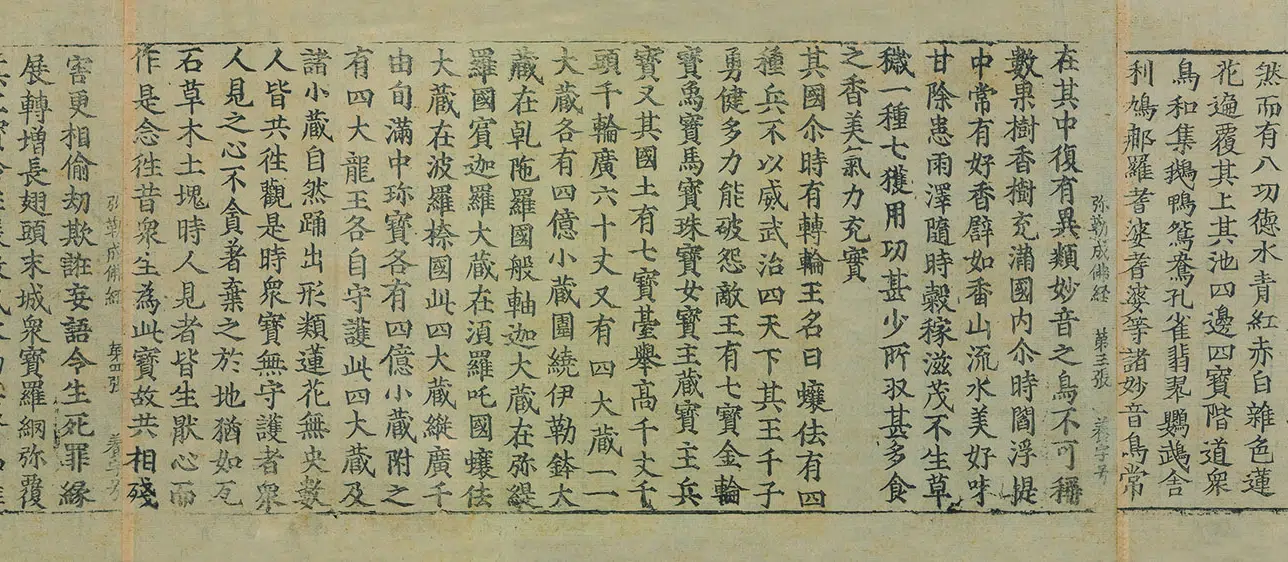 然而有八功德水青紅赤白雜色蓮
花遍覆其上其池四邊四寶階道衆
鳥和集鵝鴨鴛鴦孔雀翡翠鸚鵡舍
利鳩那羅耆婆耆婆等諸妙音鳥常
弥勒成佛経 第三張 養字号
在其中復有異類妙音之鳥不可稱
數果樹香樹充滿國内尒時閻浮提
中常有好香譬如香山流水美好味
甘除患雨澤隨時穀稼滋茂不生草
穢一種七獲用功甚少所収甚多食
之香美氣力充實
其國尒時有轉輪王名曰蠰佉有四
種兵不以威武治四天下其王千子
勇健多力能破怨敵王有七寶金輪
寶象寶馬寶珠寶女寶主藏寶主兵
寶又其國土有七寶臺舉高千丈千
頭千輪廣六十丈又有四大藏一一
大藏各有四億小藏圍繞伊勒鉢大
藏在乹陁羅國般軸迦大藏在弥緹
羅國賓迦羅大藏在湏羅吒國蠰佉
大藏在波羅㮈國此四大藏縱廣千
由旬滿中珎寶各有四億小藏附之
有四大龍王各自守護此四大藏及
諸小藏自然踊出形類蓮花無央數
人皆共往觀是時衆寶無守護者衆
人見之心不貪著棄之於地猶如瓦
石草木土塊時人見者皆生猒心而
作是念往昔衆生為此寶故共相殘
弥勒成佛経 第四張 養字号
害更相偷劫欺誑妄語令生死罪縁
展轉增長翅頭末城衆寶羅網弥覆